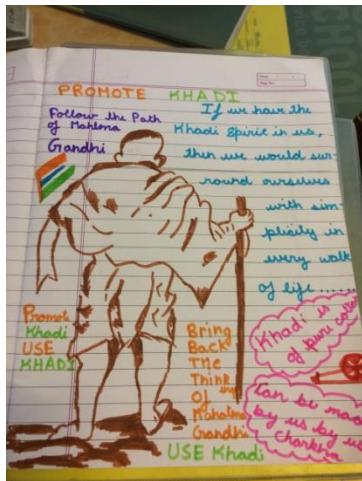 PROMOTE KHADI
Follow the Path
of Mahtma
Gandhi
If we have the
Khadi Spirit in us,
then we would sur-
round ourselves
with sim-
plicity in
every walk
of life......
Promote
Khadi
USE
KHADI
Bring
Back
The
Think
ing
Of
Mahatma
Gandhi
USE Khadi
Khadi is
of pure
Can be mad
by us by us
Charkha